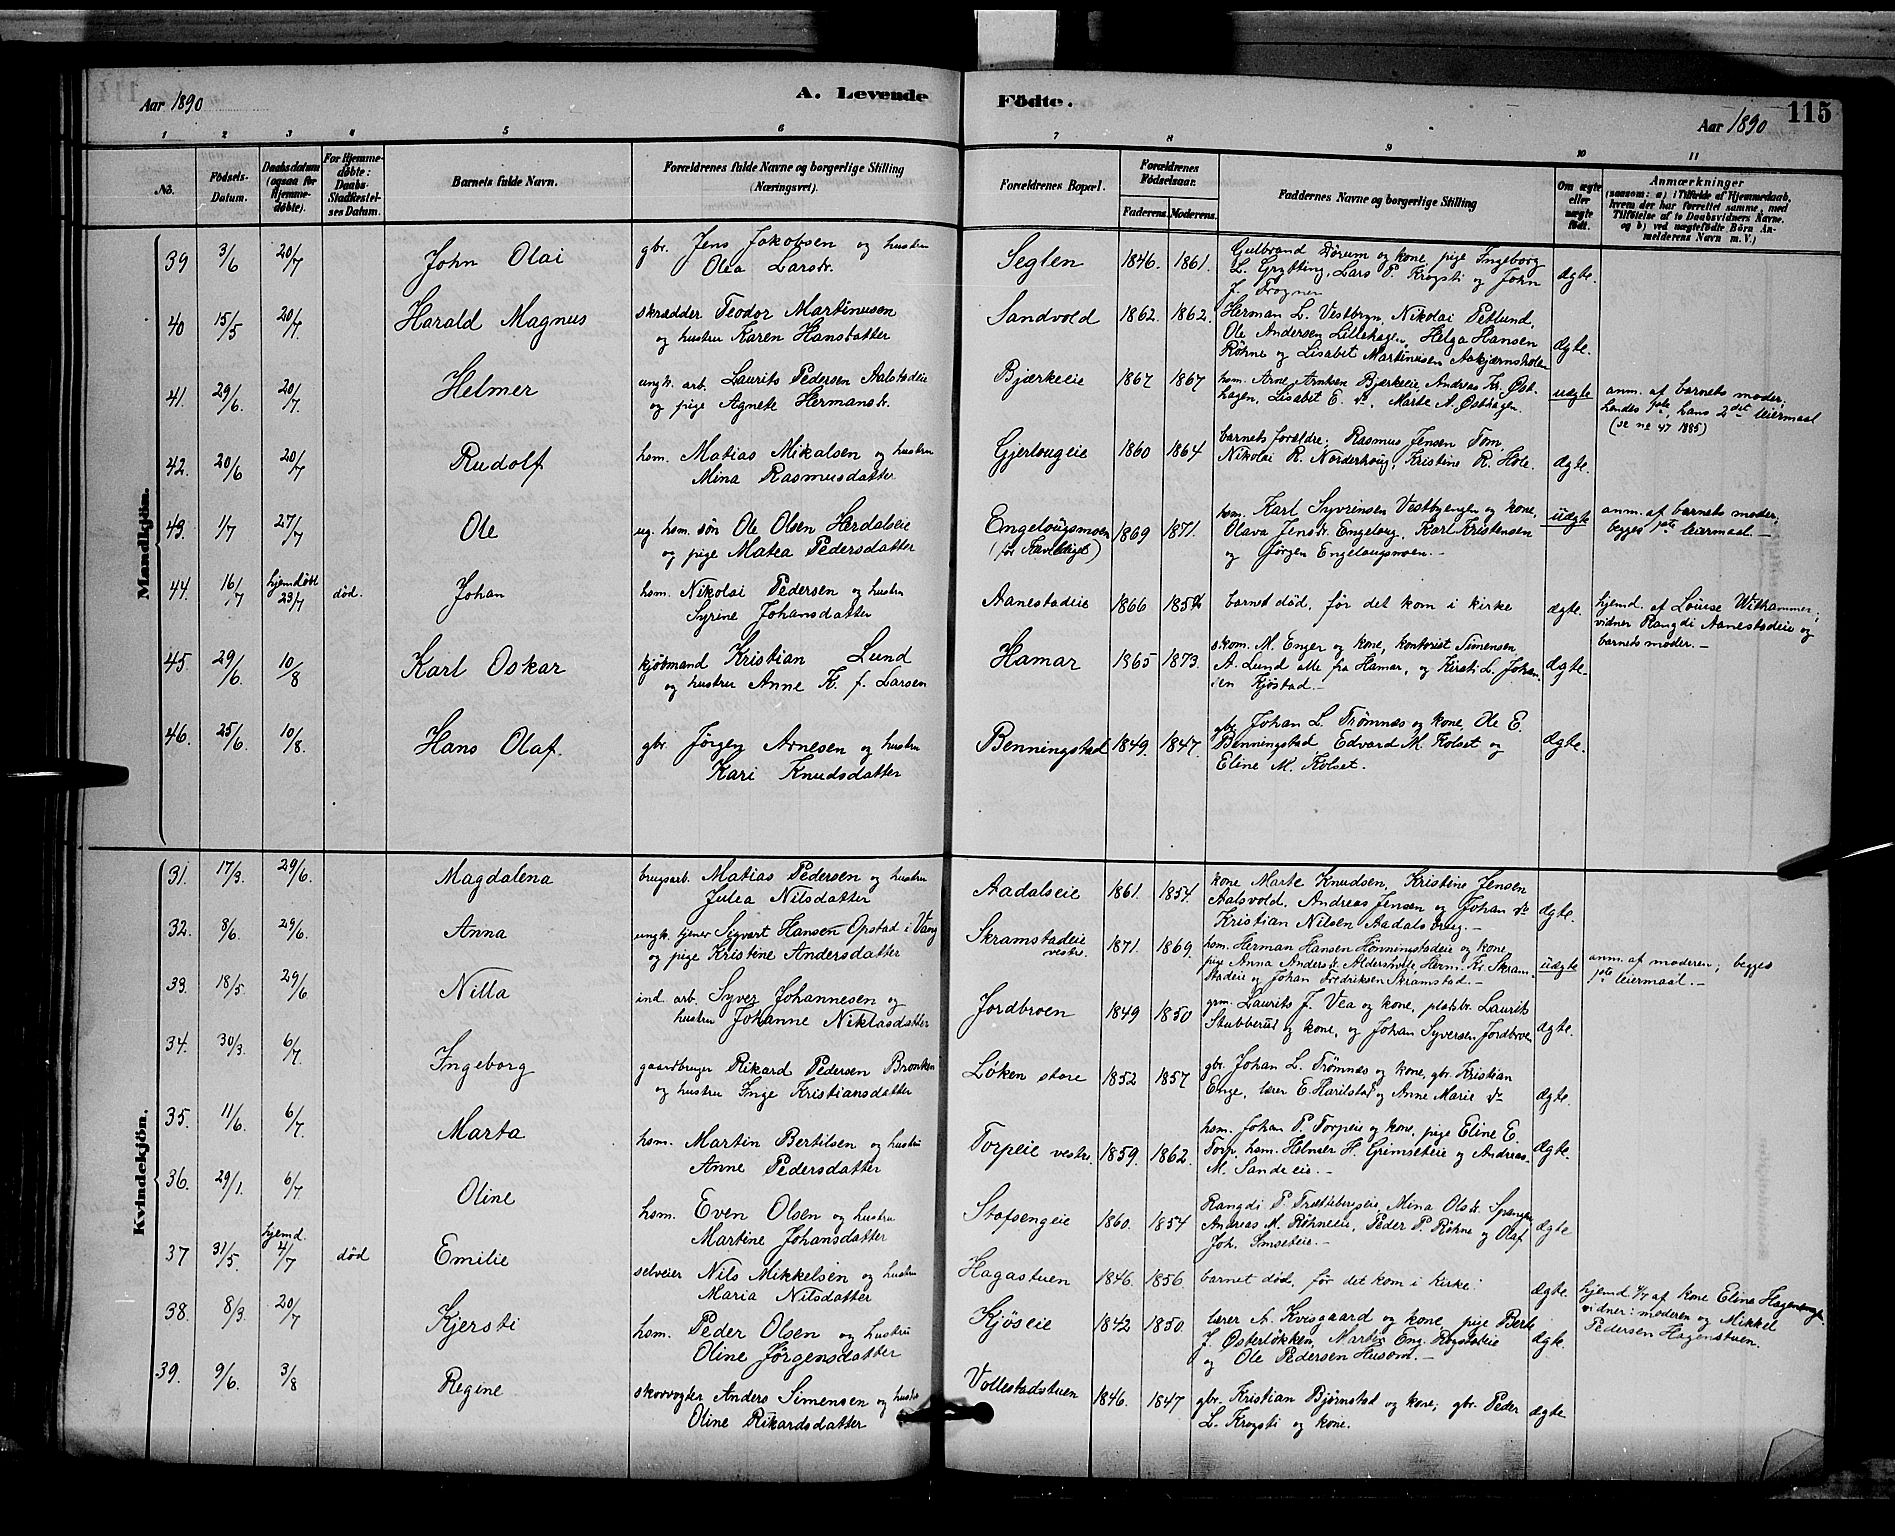 Aar 1890
A. Levende
Födte.
Aar 1890
115
1 2 3 4 5 6 7 8 9 10 11
No.
Födsels-Datum.
Daabsdatum (ogsaa for Hjemme-döbte).
For Hjemme-döbte: Daabs-Stadfæstel-ses Datum.
Barnets fulde Navn.
Forældrenes fulde Navne og borgerlige Stilling (Næringsvei).
Forældrenes Bopæl.
Forældrenes Födselsaar.
Faderens. Moderens.
Faddernes Navne og borgerlige Stilling
Om ægte eller uægte født.
Anmærkninger
(saasom: a) i Tilfælde af Hjemmedaab, hvem der har forrettet samme, med Tilföielse af to Daabsvidners Navne, og b) ved uægtefödte Börn An-melderens Navn m. V.)
Mandkjön.
39 3/6 20/7 John Olai
gbr. Jens Jakobsen og hustru
Olea Larsdr.
Seglen 1846. 1861.
Gulbrand Dørum og kone, pige Ingeborg
L. Grytting, Lars P. Krogsti og John
J. Frogner
Ægte.
40 15/5 20/7. Harald Magnus
skrædder Teodor Martinusen
og hustru Karen Hansdatter
Sandvold 1862. 1862.
Herman L. Vestbryn, Nikolai Petlund,
Ole Andersen Lillehagen, Helga Hansen
Røhne og Lisabet Martinusen
Ægte.
41. 29/6. 20/7. Helmer
ungk. arb. Laurits Pedersen Aalstadeie
og pige Agnete Hermansdr.
Bjærkeie 1867 1867
hsm. Arne Arntsen Bjærkeie, Andreas Kr. Øst-
hagen, Lisabet E. do, Marte A. Østhagen.
uægte
anm. af barnets moder,
hendes 1ste, hans 2det leiermaal
(se no 47 1885)
42. 20/6 20/7 Rudolf
hsm. Matias Mikalsen og hustru
Mina Rasmusdatter
Gjerlougeie 1860 1864
barnets forældre; Rasmus Jensen Tom,
Nikolai R. Norderhoug, Kristine R. Hole.
Ægte.
43. 1/7 27/7 Ole
ug. hsm. søn Ole Olsen Herdalseie
og pige Matea Pedersdatter
Engelougsmoen 1869 1871.
hsm. Karl Syvensen Vestbyengen og kone,
Olava Jensdr. Engeloug, Karl Kristensen
og Jørgen Engelougsmoen. —
uægte
anm. af barnets moder;
begges 1ste leiermaal. —
44. 16/7 hjemdøbt 23/7 død. Johan
hsm. Nikolai Pedersen og hustru
Syrine Johansdatter
Aanestadeie 1866
barnet død, før det kom i kirke
Ægte.
hjemd. af Louise Withammer;
vidner Rangdi Aanestadeie og
barnets moder. —
45. 29/6. 10/8 Karl Oskar
kjøbmand Kristian Lund
og hustru Anne K. f. Larsen
Hamar 1865 1873.
skom. M. Enger og kone, kontorist Simensen,
A. Lund alle fra Hamar, og Kirsti L. Johan-
sen Kjøstad. —
Ægte.
46. 25/6. 10/8. Hans Olaf.
gbr. Jørgen Arnesen og hustru
Kari Knudsdatter
Benningstad 1849. 1847.
gbr. Johan L. Trømnæs og kone, Ole E.
Benningstad, Edvard M. Kolset og
Eline M. Kolset.
Ægte.
Kvindekjön.
31. 17/3. 29/6. Magdalena
brugsarb. Matias Pedersen og hustru
Julea Nilsdatter
Aadalseie 1861. 1854.
kone Marte Knudsen, Kristine Jensen
Aalsvold, Andreas Jensen og Johan do
Kristian Nilsen Aadalsbrug. —
ægte.
32. 8/6. 29/6. Anna
ungk. tjener Sigvart Hansen Opstad i Vang
og pige Kristine Andersdatter
Skramstadeie vestre. 1871. 1869.
hsm. Herman Hansen Hønningstadeie og kone,
pige Anna Andersdr. Aldershvile, Herm. Kr. Skram-
stadeie og Johan Fredriksen Skramstad. —
uægte
anm. af moderen; begges
1ste leiermaal. —
33. 18/5. 29/6 Nilla
ind. arb. Syver Johannesen og
hustru Johanne Niklasdatter
Jordbroen 1849 1850
grm. Laurits J. Vea og kone, pladsbr. Laurits
Stubberud og kone, og Johan Syversen Jordbroen
ægte.
34. 30/3. 6/7. Ingeborg
gaardbruger Rikard Pedersen Bronken
og hustru Inge Kristiansdatter
Løken store 1852 1857
gbr. Johan L. Trømnæs og kone, gbr. Kristian
Enge, lærer E. Harilstad og Anne Marie do
ægte.
35. 11/6. 6/7. Marta
hsm. Martin Bertilsen og hustru
Anne Pedersdatter
Torpeie vestre. 1859. 1862.
hsm. Johan P. Torpeie og kone, pige Eline E.
Torp, hsm. Helmer H. Grimseteie og Andreas
M. Sandeeie. —
ægte.
36. 29/1. 6/7 Oline
hsm. Even Olsen og hustru
Martine Johansdatter
Stafsengeie 1860. 1854
Rangdi P. Trættebergeie, Mina Olsdr.
Andreas M. Røhneeie, Peder P. Røhne og Olaf
Joh. Imseteie. —
ægte
37 31/5. hjemd. 4/7 død Emilie
selveier Nils Mikkelsen og hustru
Maria Nilsdatter
Hagastuen 1846. 1856
barnet død, før det kom i kirke.
ægte.
hjemd 4/7 af kone Eline Hagenengen
vidner: moderen og Mikkel
Pedersen Hagenstuen.
38. 8/3. 20/7 Kjersti
hsm. Peder Olsen og hustru
Oline Jørgensdatter
Kjøseie 1842 1850.
lærer A. Kvisgaard og kone, pige Berte
J. Østerløkken, Martin Eng. Rogstadeie
og Ole Pedersen Husom. —
ægte.
39. 9/6. 3/8 Regine
skovvogter Anders Simensen og hustru
Oline Rikardsdatter
Vollestadstuen 1846. 1847
gbr. Kristian Bjørnstad og kone; gbr. Peder
L. Krogsti og kone.
ægte